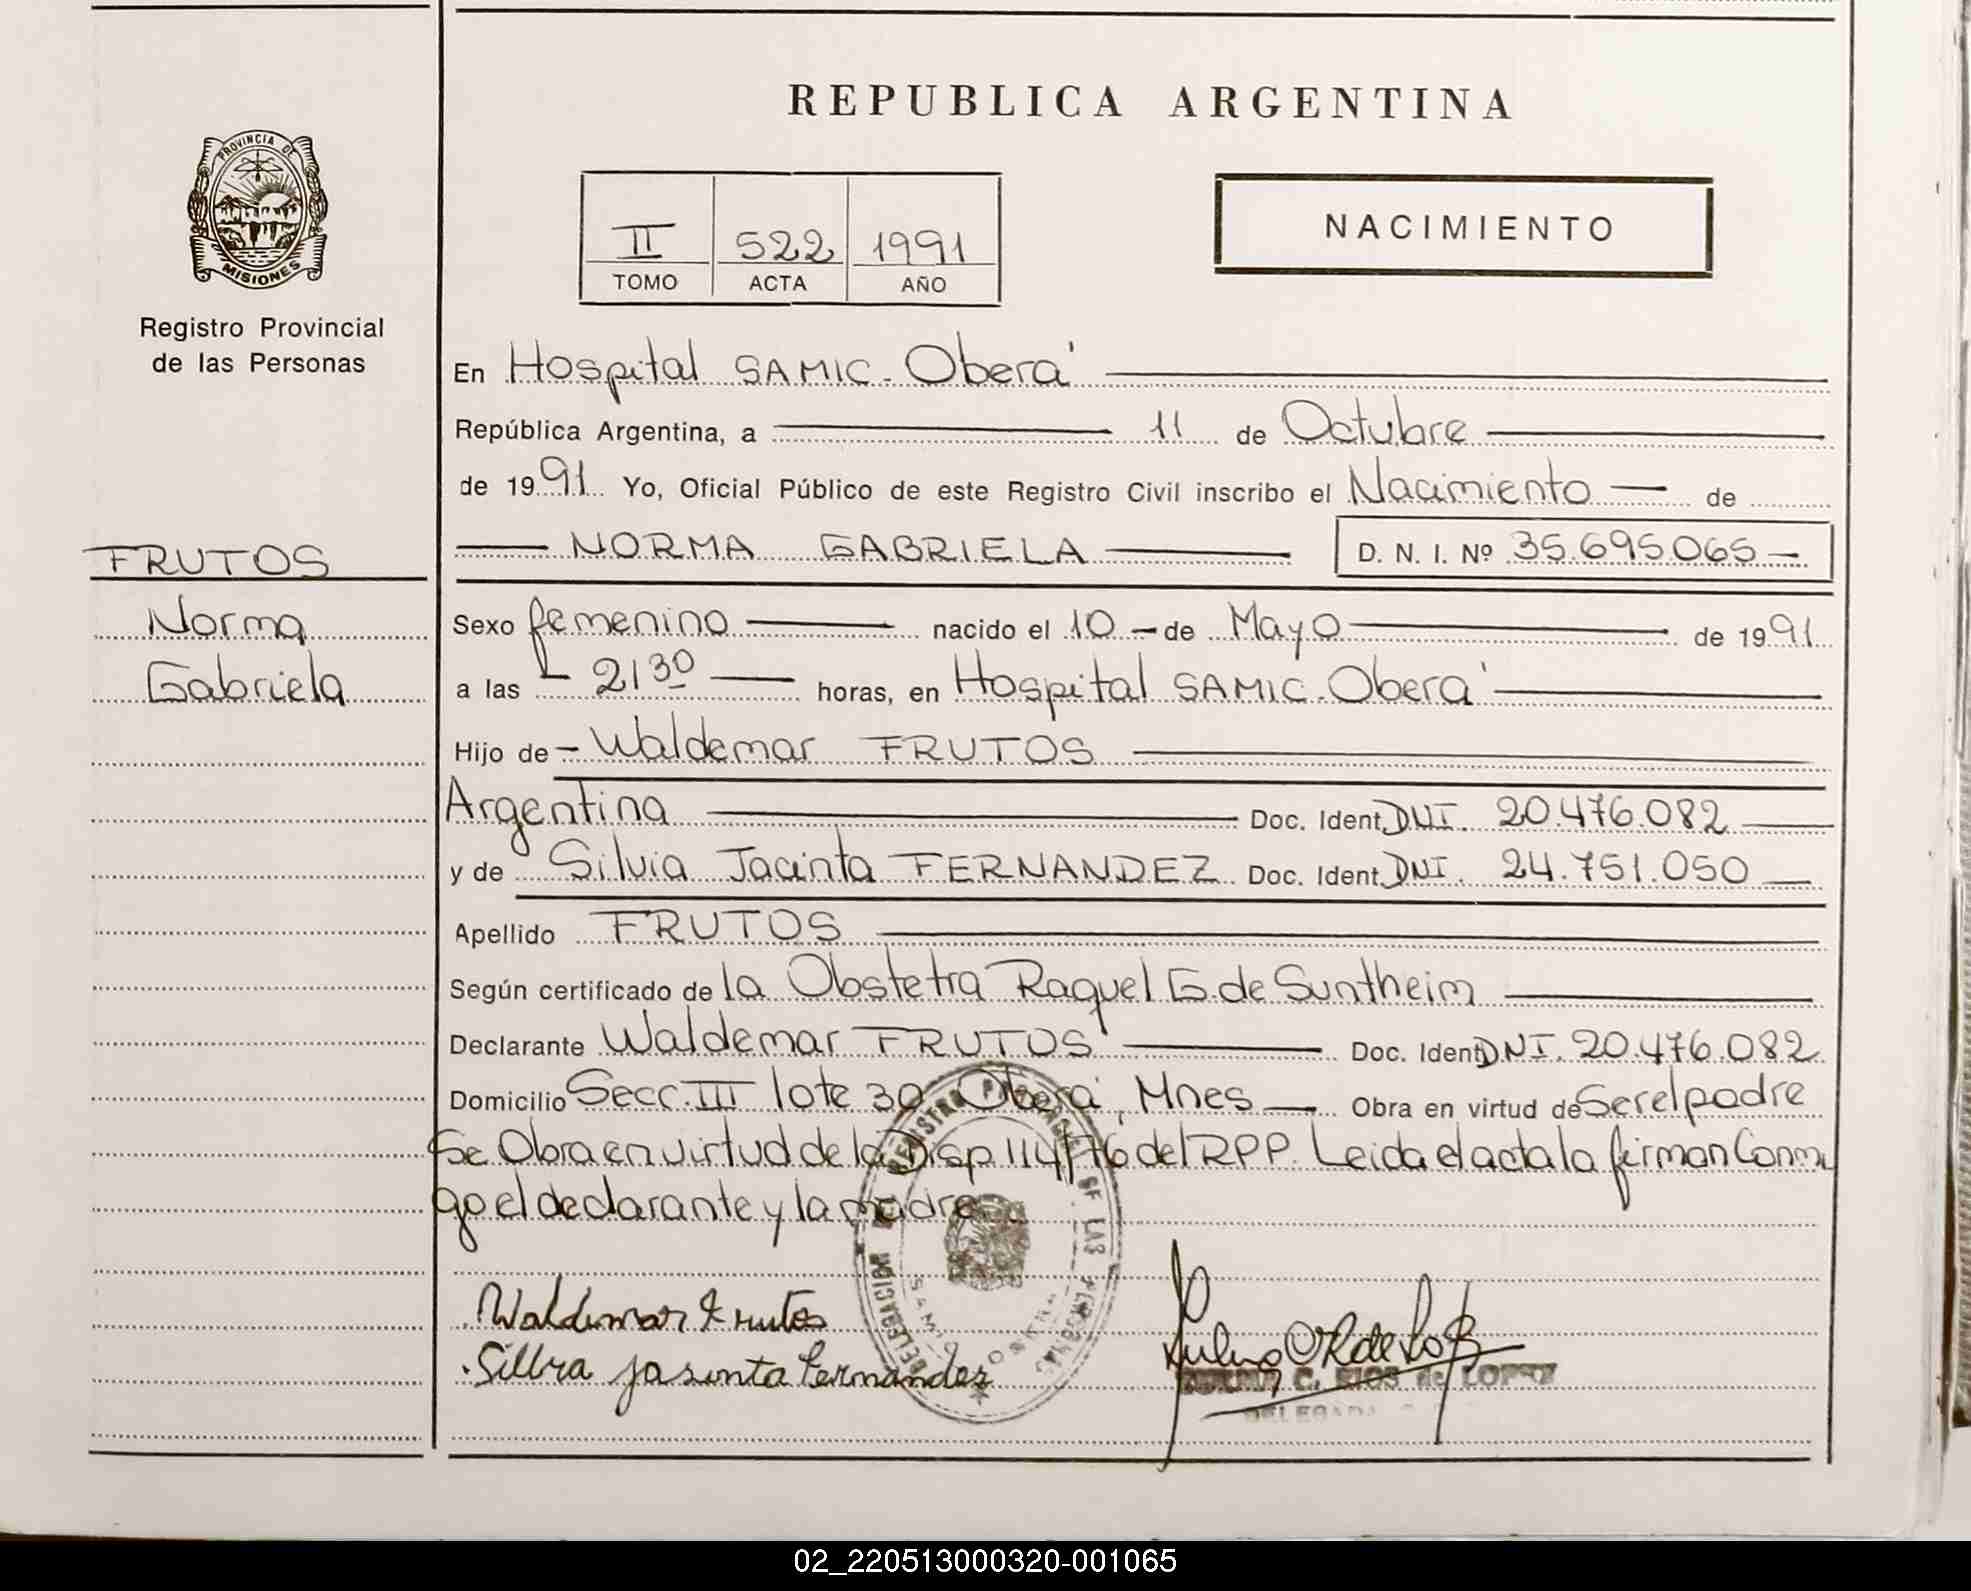 REPUBLICA ARGENTINA
PROVINCIA DE
MISIONES
Registro Provincial
de las Personas
II 522 1991
TOMO ACTA AÑO
NACIMIENTO
En Hospital SAMIC. Oberá
República Argentina, a 11 de Octubre
de 1991 Yo, Oficial Público de este Registro Civil inscribo el Nacimiento de
FRUTOS
Norma
Gabriela
NORMA GABRIELA D. N. I. Nº 35.695.065
Sexo femenino nacido el 10 de Mayo de 1991
a las 21 30 horas, en Hospital SAMIC. Oberá
Hijo de Waldemar FRUTOS
Argentina Doc. Ident. DNI. 20.476.082
y de Silvia Jacinta FERNANDEZ Doc. Ident. DNI. 24.751.050
Apellido FRUTOS
Según certificado de la Obstetra Raquel G. de Suntheim
Declarante Waldemar FRUTOS Doc. Ident. DNI. 20.476.082
Domicilio Secc. III lote 30 Oberá, Mnes Obra en virtud de Ser el padre
Se Obra en virtud de la Disp 114/76 del RPP. Leida el acta la firman Conmi
go el declarante y la madre
Waldemar Frutos
Silbia Jasinta Fernandez
C. RIOS de LOPEZ
DELEGADA
DELEGACION
02_220513000320-001065